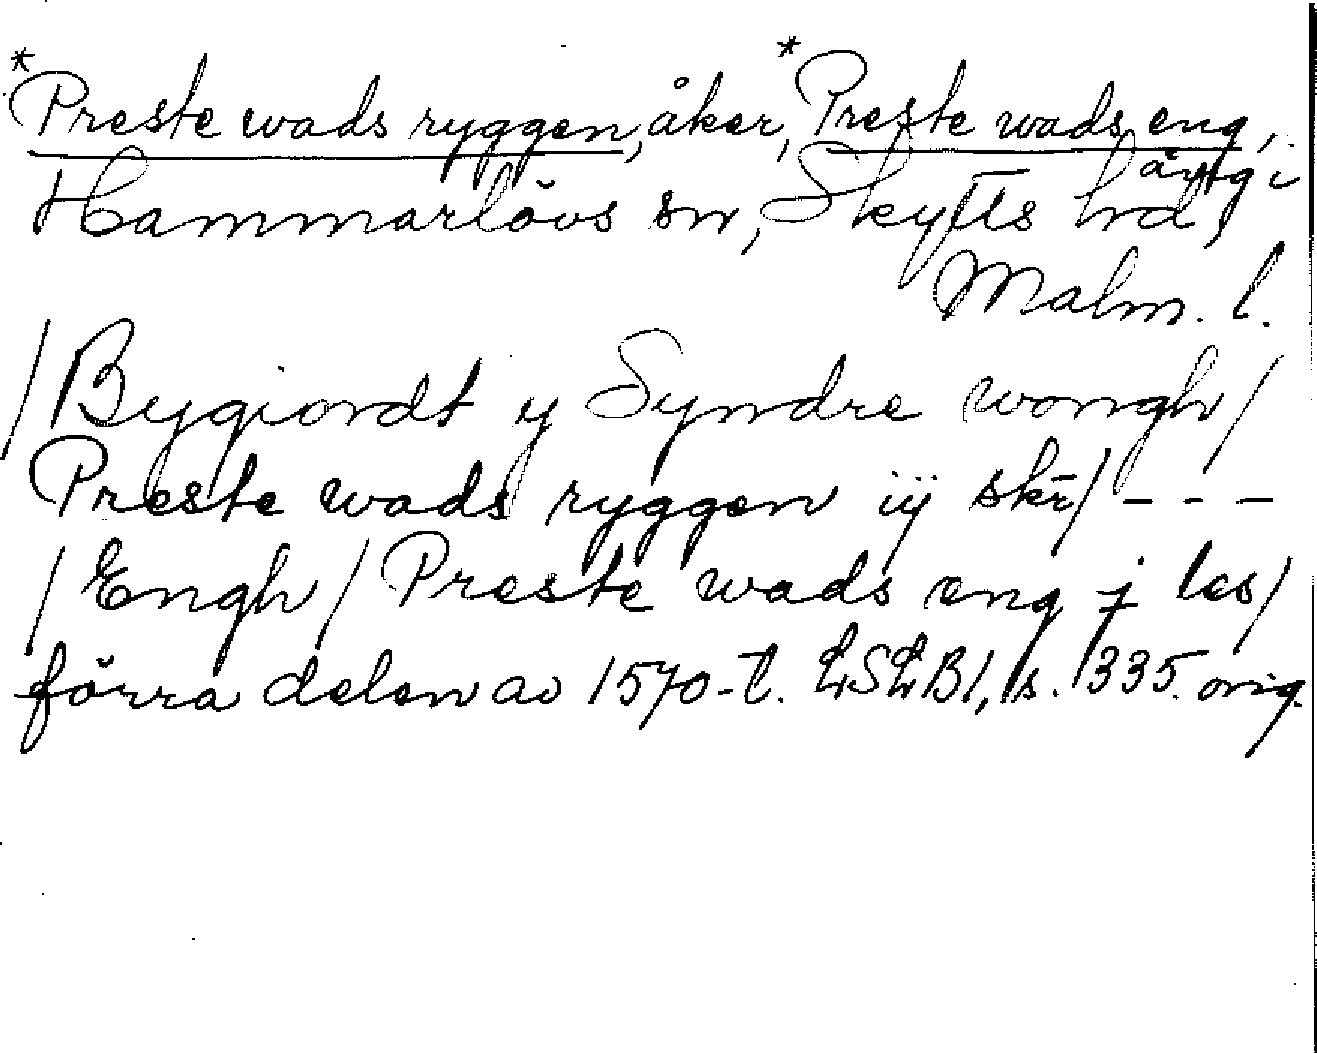 *Preste wads ryggen, åker, *Preste wads eng,
äng i
Hammarlövs sn, Skytts hd,
Malm. l.
/Bygiordt y Syndre wongh/
Preste wads ryggen iÿ skr/ - - -
/Engh/ Preste wads eng j les/
förra delen av 1570-t. LSLB I, s. 335. orig.